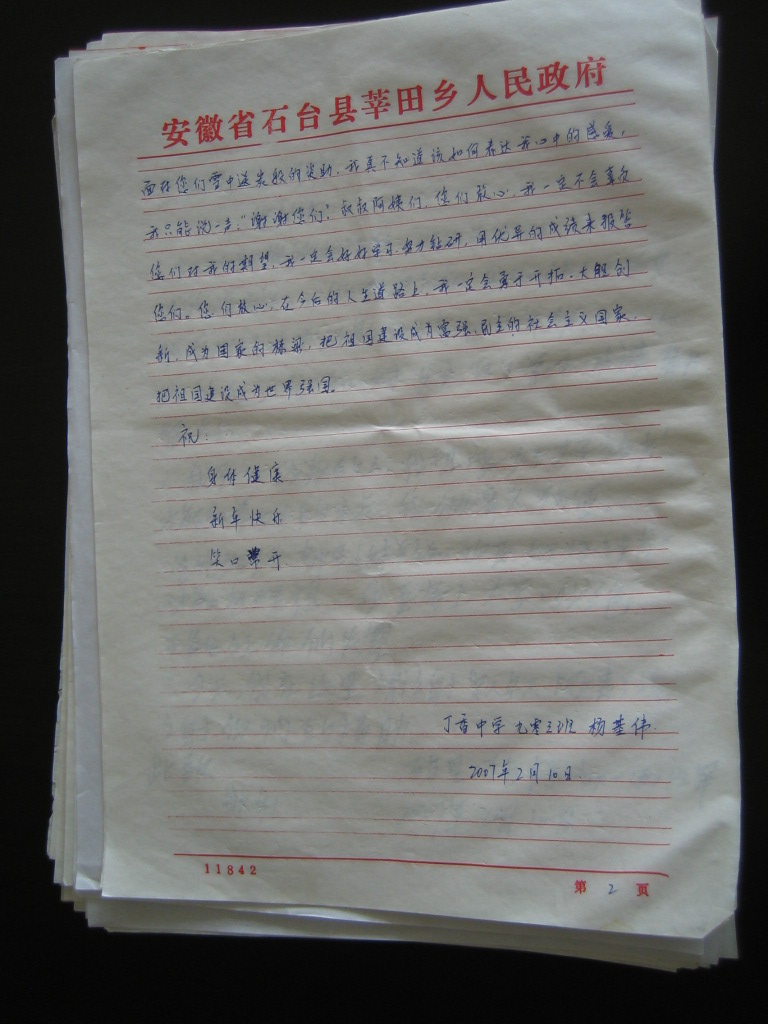 安徽省石台县莘田乡人民政府
面对您们雪中送炭般的资助，我真不知道该如何表达我心中的感受，
我只能说一声："谢谢您们"。叔叔阿姨们，您们放心，我一定不会辜负
您们对我的期望，我一定会好好学习，努力钻研，用优异的成绩来报答
您们。您们放心，在今后的人生道路上，我一定会勇于开拓、大胆创
新，成为国家的栋梁，把祖国建设成为富强、民主的社会主义国家，
把祖国建设成为世界强国。
祝：
身体健康
新年快乐
笑口常开
丁香中学九零三班 杨基伟
2007年2月10日
11842
第 2 页